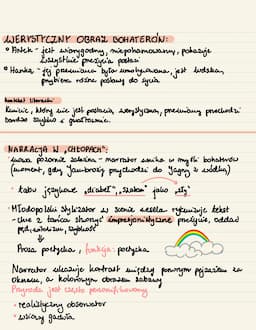 WERYSTYCZNY OBRAZ BOHATERÓW:
Antek - jest wiarygodny, niepohamowany, pokazuje
wszystkie przeżycia postaci
Hanka - jej przemiana była umotywowana, jest ludzka,
przybiera różne postawy do życia
kontekst literacki
Kmicic, który nie jest postacią werystyczną, przemiany przechodzi
bardzo szybko i gwałtownie.
NARRACJA W „CHŁOPACH":
mowa pozornie zależna - narrator wnika w myśli bohaterów
(moment, gdy Jambroży przychodzi do Jagny z wódką)
tabu językowe „diabeł", „szatan" jako „zły"
Młodopolski stylizator w scenie wesela rytmizuje tekst
- chce z tańca stworzyć impresjonistyczne przeżycie, oddać
pęd, wirowanie, szybkość
Proza poetycka, funkcja: poetycka
Narrator ukazuje kontrast między ponurym pejzażem za
oknem, a kolorowym obrazem zabawy
Przyroda jest często personifikowana
realistyczny obserwator
wsiowy gaduła